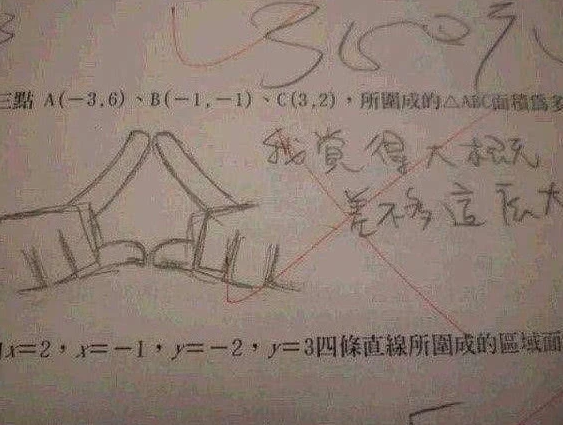 3 360元
三點 A(-3,6)、B(-1,-1)、C(3,2)，所圍成的△ABC面積為多
我覺得大概
差不多這麼大
x=2，x=-1，y=-2，y=3四條直線所圍成的區域面